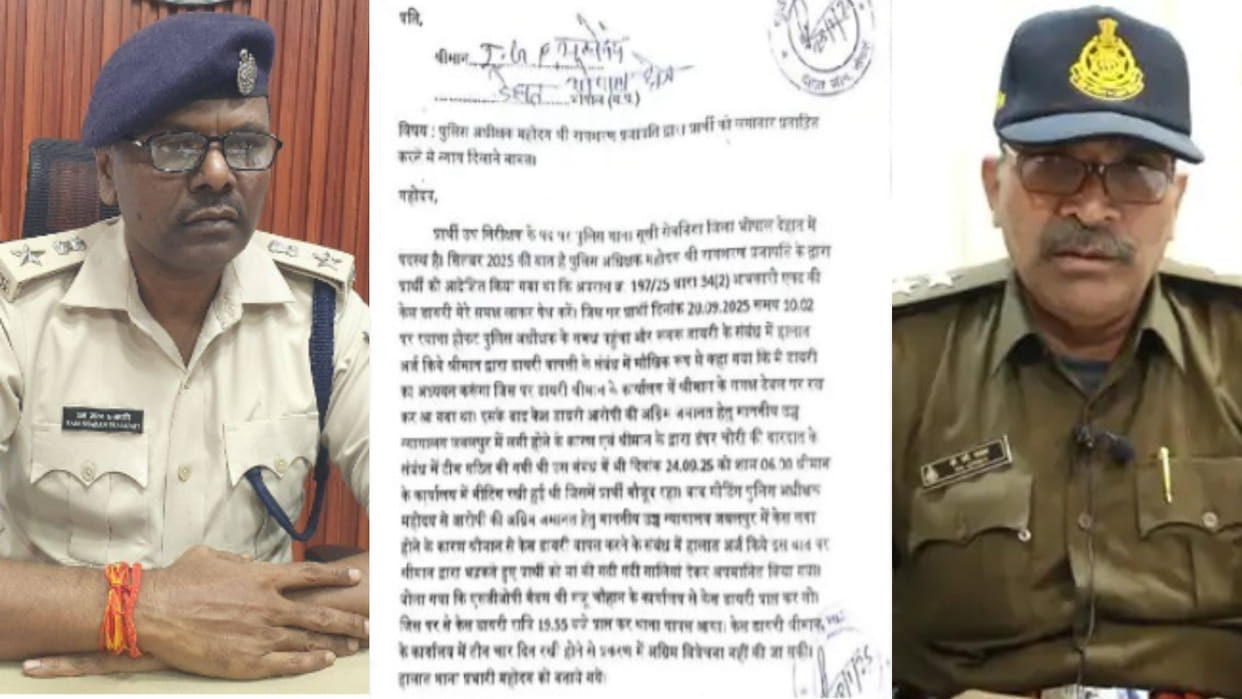 प्रति,
श्रीमान
भोपाल (म.प्र.)
विषय : पुलिस अधीक्षक महोदय श्री रामशरण प्रजापति द्वारा प्रार्थी को लगातार प्रताड़ित
करने से न्याय दिलाने बाबत।
महोदय,
प्रार्थी उप निरीक्षक के पद पर पुलिस थाना सूखी सेवनिया जिला भोपाल देहात में
पदस्थ है। सितम्बर 2025 की बात है पुलिस अधिक्षक महोदय श्री रामशरण प्रजापति के द्वारा
प्रार्थी को आदेशित किया गया था कि अपराध क्र. 197/25 धारा 34(2) आबकारी एक्ट की
केस डायरी मेरे समक्ष लाकर पेश करें। जिस पर प्रार्थी दिनांक 20.09.2025 समय 10.02
पर रवाना होकर पुलिस अधीक्षक के समक्ष पहुंचा और डायरी के संबंध में हालात
अर्ज किये श्रीमान द्वारा डायरी वापसी के संबंध में मौखिक रूप से कहा गया कि मैं डायरी
का अध्ययन करूंगा जिस पर डायरी श्रीमान के कार्यालय में श्रीमान के समक्ष टेबल पर रख
कर आ गया था। इसके बाद केस डायरी आरोपी की अग्रिम जमानत हेतु माननीय उच्च
न्यायालय जबलपुर में लगी होने के कारण एवं श्रीमान के द्वारा डंपर चोरी की वारदात के
संबंध में टीम गठित की गयी थी उस संबंध में भी दिनांक 24.09.25 को शाम 06.30 श्रीमान
के कार्यालय में मीटिंग रखी हुई थी जिसमें प्रार्थी मौजूद रहा। बाद मीटिंग पुलिस अधीक्षक
महोदय से आरोपी की अग्रिम जमानत हेतु माननीय उच्च न्यायालय जबलपुर में केस लगा
होने के कारण श्रीमान से केस डायरी वापस करने के संबंध में हालात अर्ज किये इस बात पर
श्रीमान द्वारा भड़कते हुए प्रार्थी को मां की गंदी गंदी गालियां देकर अपमानित किया गया।
बोला गया कि एसडीओपी मैडम चौहान के कार्यालय से केस डायरी प्राप्त कर लो।
जिस पर से केस डायरी रात्रि 19.55 बजे प्राप्त कर थाना वापस आया। केस डायरी श्रीमान
के कार्यालय में तीन चार दिन रखी होने से प्रकरण में अग्रिम विवेचना नहीं की जा सकी।
हालात थाना प्रभारी महोदय को बताये गये।